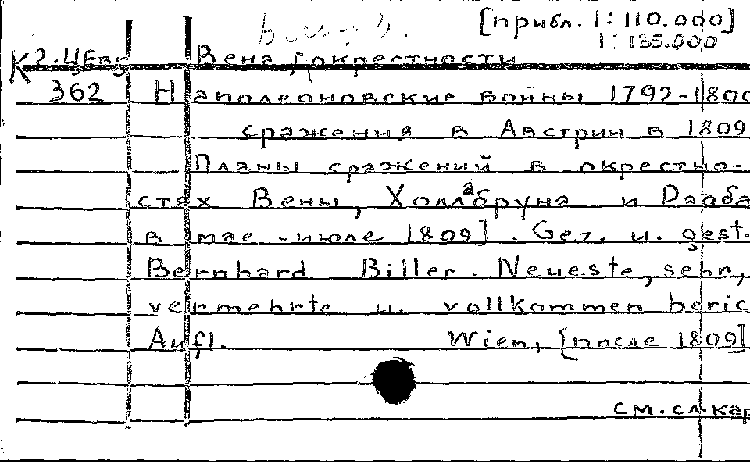 [прибл. 1:110.000]
1:135.000
К 2.ЦЕву Вена, окрестности
362 Наполеоновские войны 1792-1800
сражения в Австрии в 1809
[Планы сражений в окрестно-
стях Вены, Холлабруна и Рааба
в мае-июле 1809]. Gez. u. gest.
Bernhard Biller. Neueste, sehr,
vermehrte u. vollkommen beric
Aufl. Wien, [после 1809]
см. сл. кар